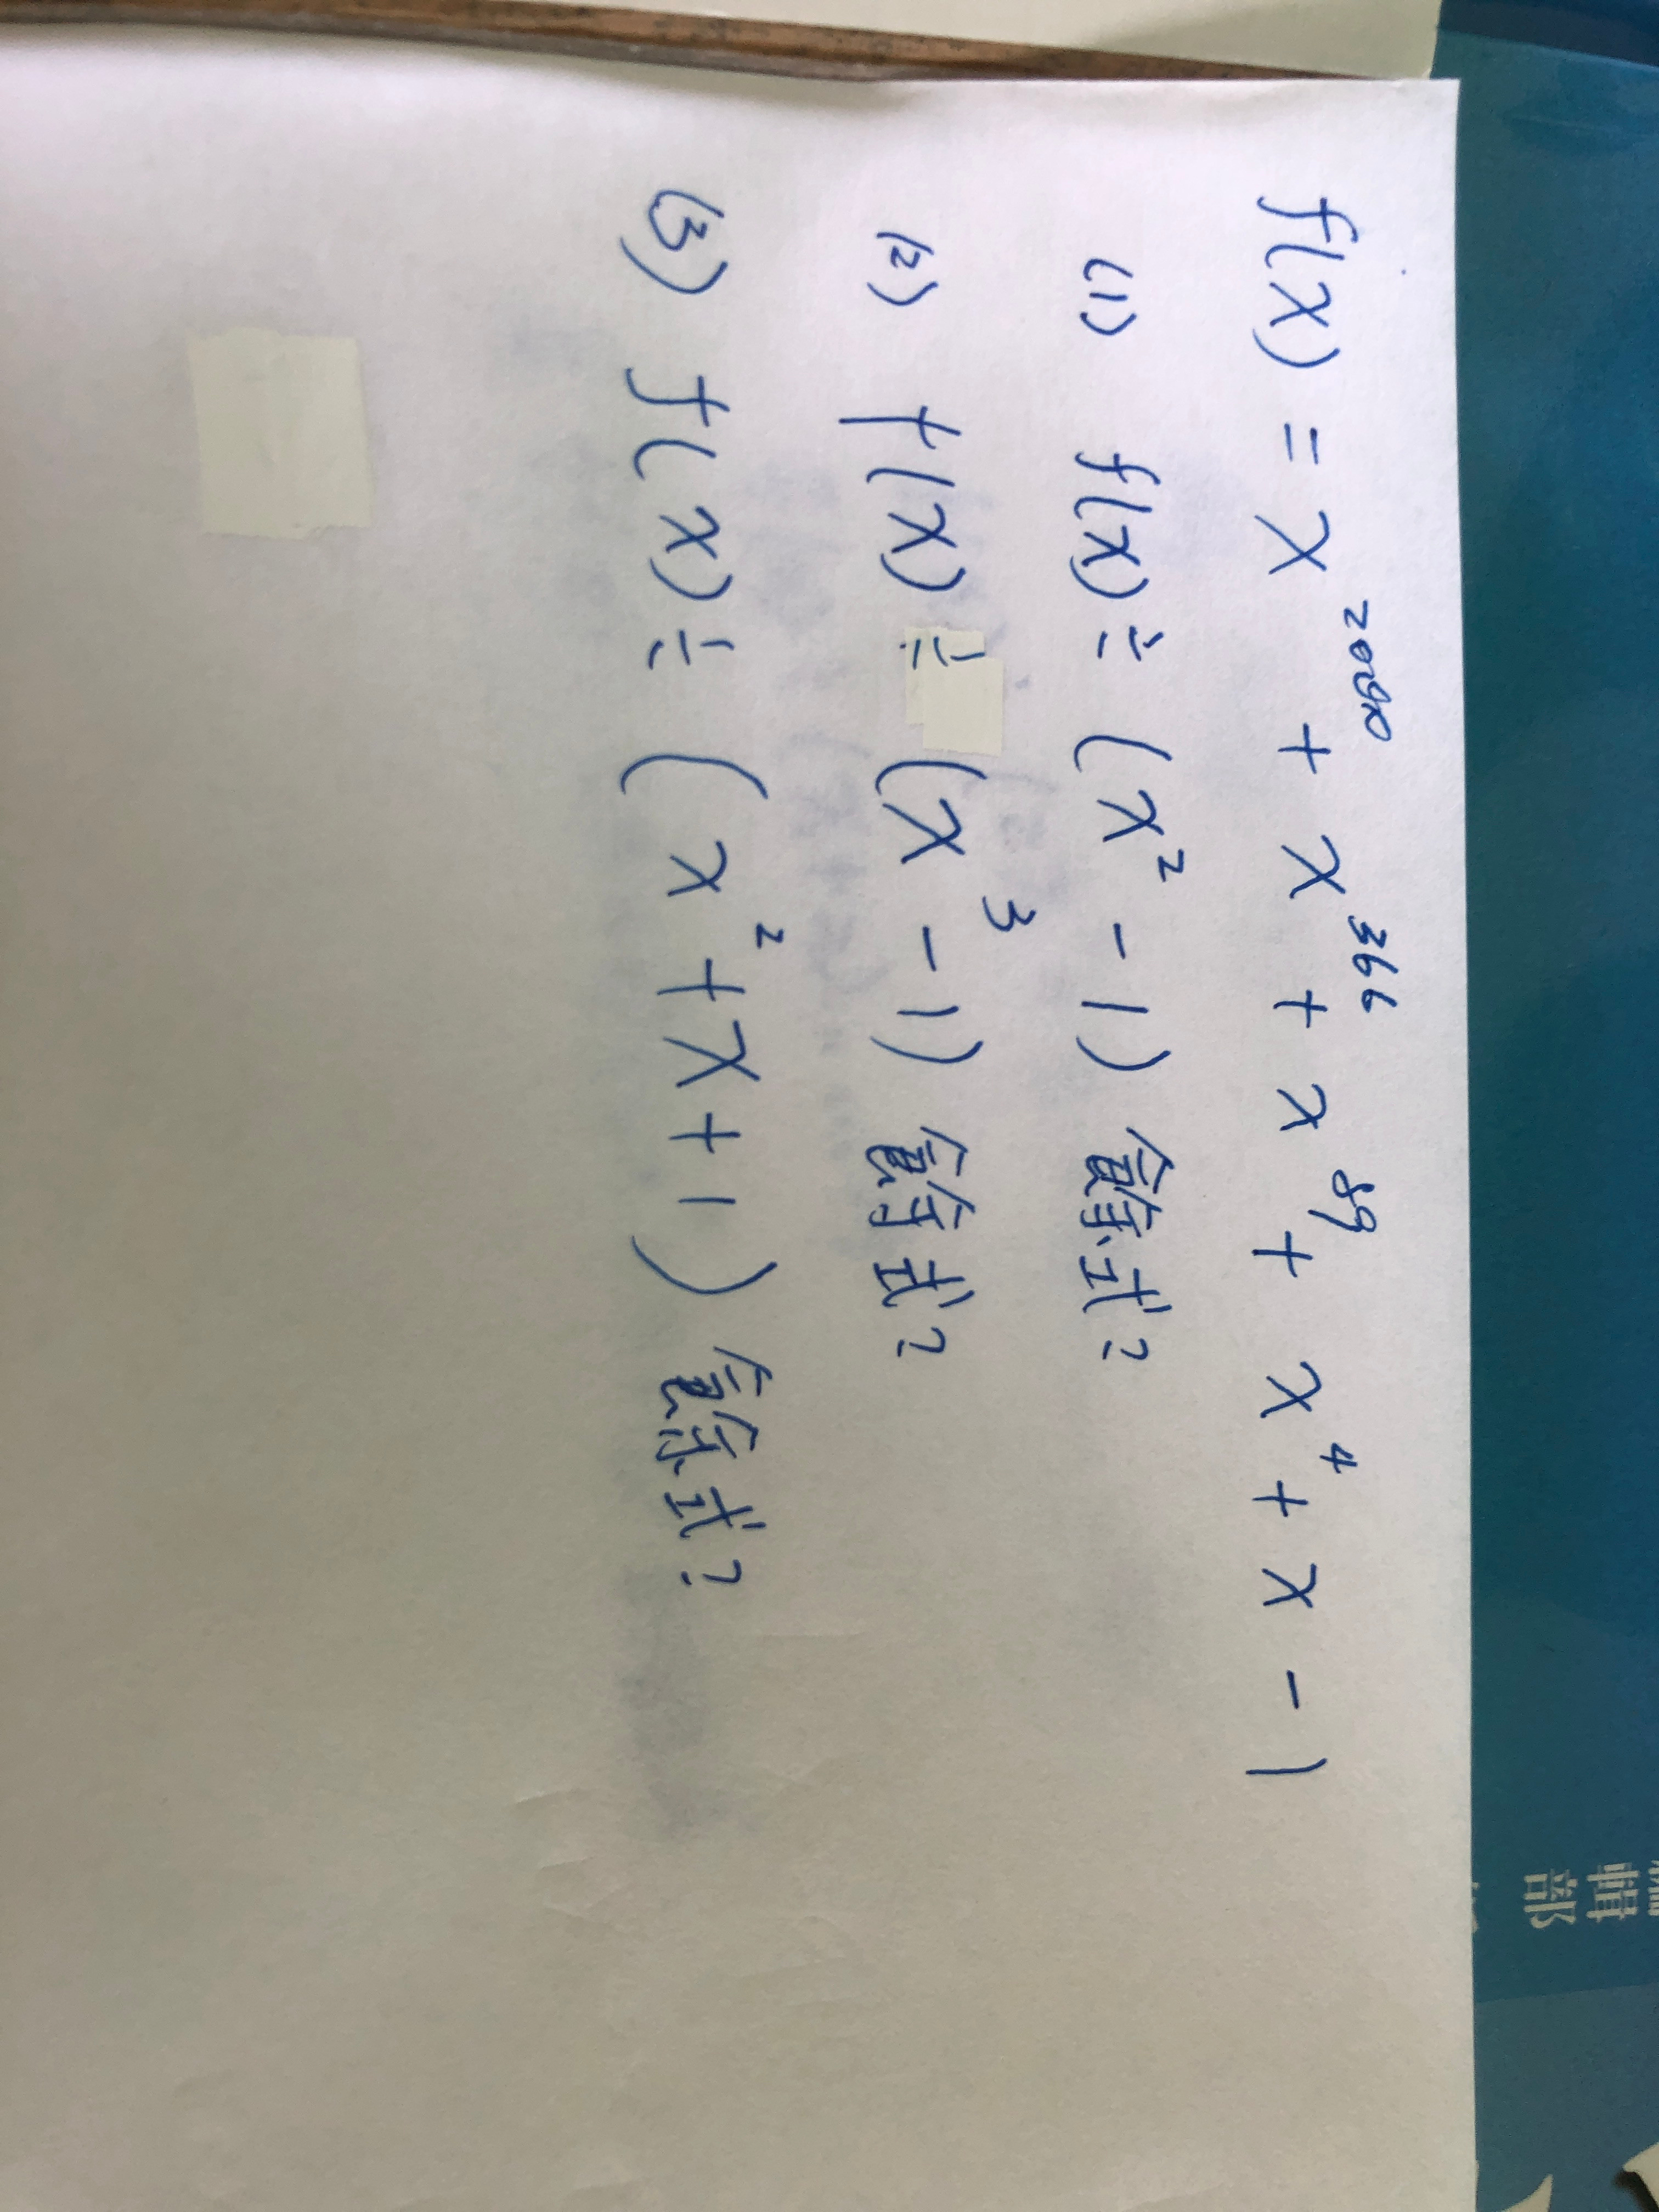 f(x) = x + x³⁶⁶ + x⁸⁹ + x⁴ + x - 1
(1) f(x) ÷ (x² - 1) 餘式?
(2) f(x) ÷ (x³ - 1) 餘式?
(3) f(x) ÷ (x² + x + 1) 餘式?
輯部